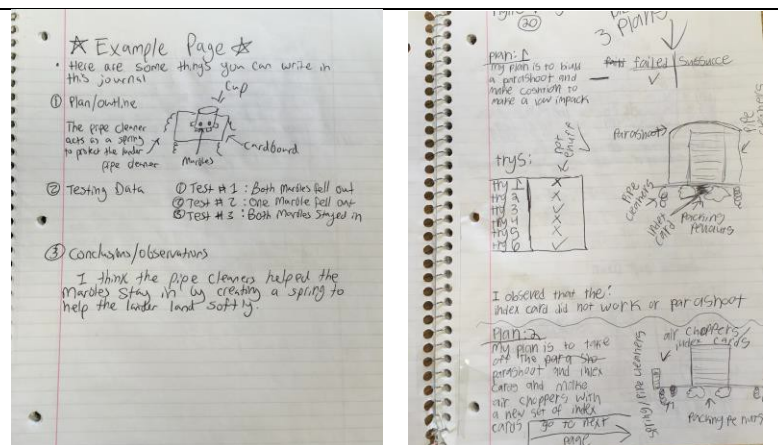 ☆ Example Page ☆
• Here are some things you can write in
this journal
① Plan/outline
cup
The pipe cleaner
acts as a spring
to protect the lander
pipe cleaner
Marbles
Cardboard
② Testing Data
① Test # 1 : Both Marbles fell out
② Test # 2 : One Marble fell out
③ Test # 3 : Both Marbles Stayed in
③ Conclusions/observations
I think the pipe cleaners helped the
Marbles Stay in by creating a spring to
help the lander land softly.
20
3 Plans
plan: 1
my plan is to build
a parashoot and
make coshtion to
make a low impack
failed
parashoot
pipe cleaners
trys:
try 1 X
try 2 X
try 3 ✓
try 4 X
try 5 X
try 6 ✓
pipe cleaners
index card
packing
I observed that the:
index card did not work or parashoot
Plan: 2
My plan is to take
off the para sho
parashoot and index
cards and make
air choppers with
a new set of index
cards
go to next
page
air choppers/
index cards
spring/pipe cleaners
packing pe nuts